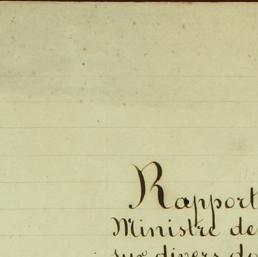 Rapport
Ministre de
sur divers do